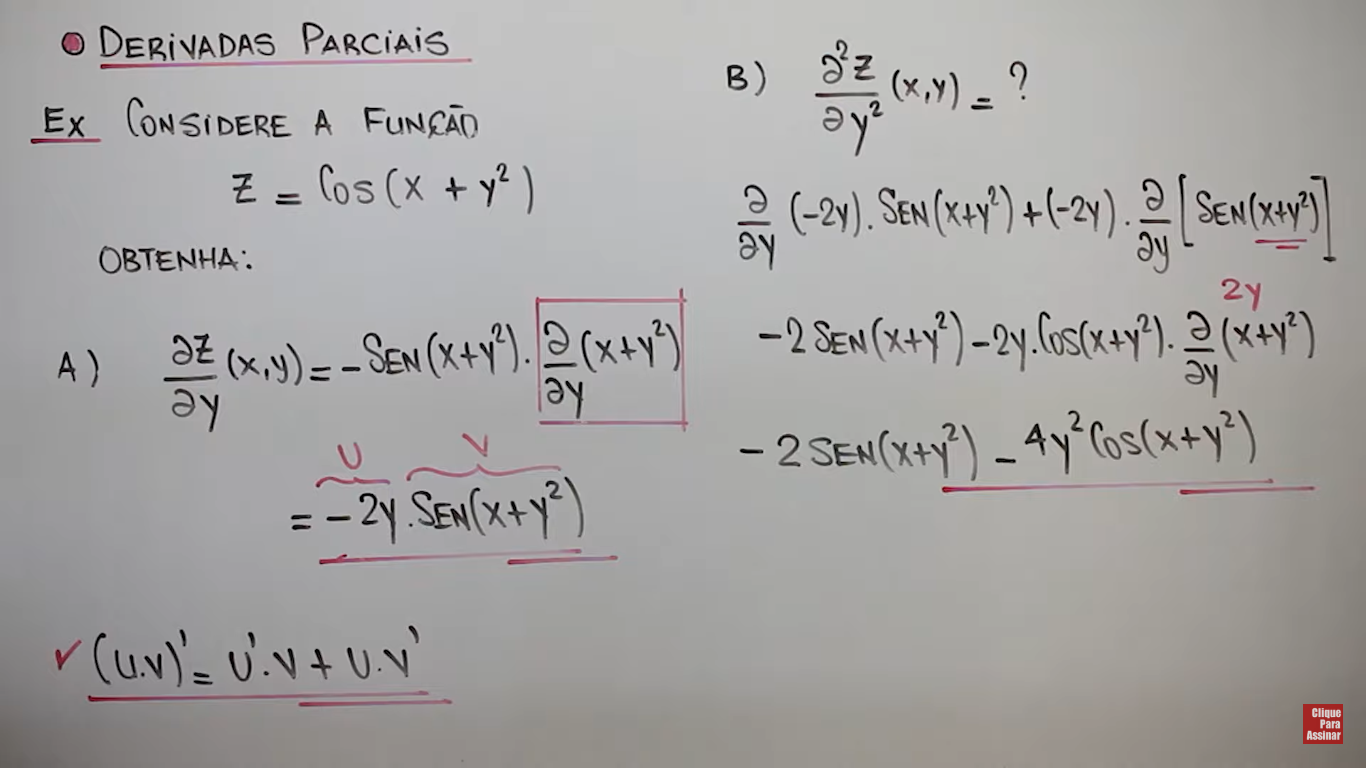 DERIVADAS PARCIAIS
Ex CONSIDERE A FUNÇÃO
Z = Cos(x + y²)
OBTENHA:
A) ∂Z/∂y (x,y) = -SEN(x+y²) . ∂/∂y (x+y²)
U V
= -2y . SEN(x+y²)
✓ (U.V)' = U'.V + U.V'
B) ∂²Z/∂y² (x,y) = ?
∂/∂y (-2y) . SEN(x+y²) + (-2y) . ∂/∂y [SEN(x+y²)]
2y
-2 SEN(x+y²) - 2y . Cos(x+y²) . ∂/∂y (x+y²)
-2 SEN(x+y²) - 4y² Cos(x+y²)
Clique
Para
Assinar